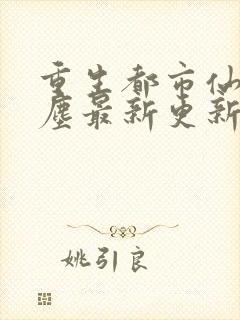 重生都市仙
尘最新更新
姚引良